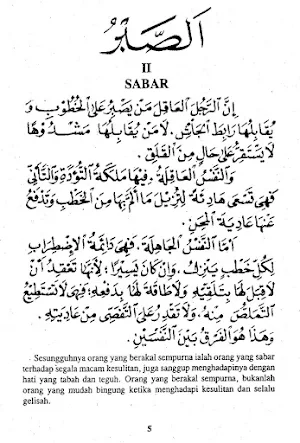 اَلصَّبْرُ
II
SABAR
إِنَّ الرَّجُلَ الْعَاقِلَ مَنْ يَصْبِرُ عَلَى الْخُطُوْبِ وَ
يُقَابِلُهَا رَابِطَ الْجَأْشِ. لَا مَنْ يُقَابِلُهَا مَشْدُوْهًا
لَا يَسْتَقِرُّ عَلَى حَالٍ مِنَ الْقَلَقِ.
وَالنَّفْسُ الْعَاقِلَةُ. فِيْهَا مَلَكَةُ التُّؤَدَةِ وَالتَّأَنِّى
فَهِيَ تَسْعَى هَادِئَةً لِتُزِيْلَ مَا أَلَمَّ بِهَا مِنَ الْخَطْبِ وَتَدْفَعُ
عَنْهَا عَادِيَةَ الْمِحَنِ.
أَمَّا النَّفْسُ الْجَاهِلَةُ. فَهِيَ دَائِمَةُ الْإِضْطِرَابِ
لِكُلِّ خَطْبٍ يَنْزِلُ. وَإِنْ كَانَ يَسِيْرًا؛ لِأَنَّهَا تَعْتَقِدُ أَنْ
لَا قِبَلَ لَهَا بِتَلَقِّيْهِ وَلَا طَاقَةَ لَهَا بِدَفْعِهِ؛ فَهِيَ لَا تَسْتَطِيْعُ
التَّمَلُّصَ مِنْهُ. وَلَا تَقْدِرُ عَلَى التَّفَصِّى مِنْ عَادِيَتِهِ.
وَهٰذَا هُوَ الْفَرْقُ بَيْنَ النَّفْسَيْنِ.
- Sesungguhnya orang yang berakal sempurna ialah orang yang sabar
terhadap segala macam kesulitan, juga sanggup menghadapinya dengan
hati yang tabah dan teguh. Orang yang berakal sempurna, bukanlah
orang yang mudah bingung ketika menghadapi kesulitan dan selalu
gelisah.
5